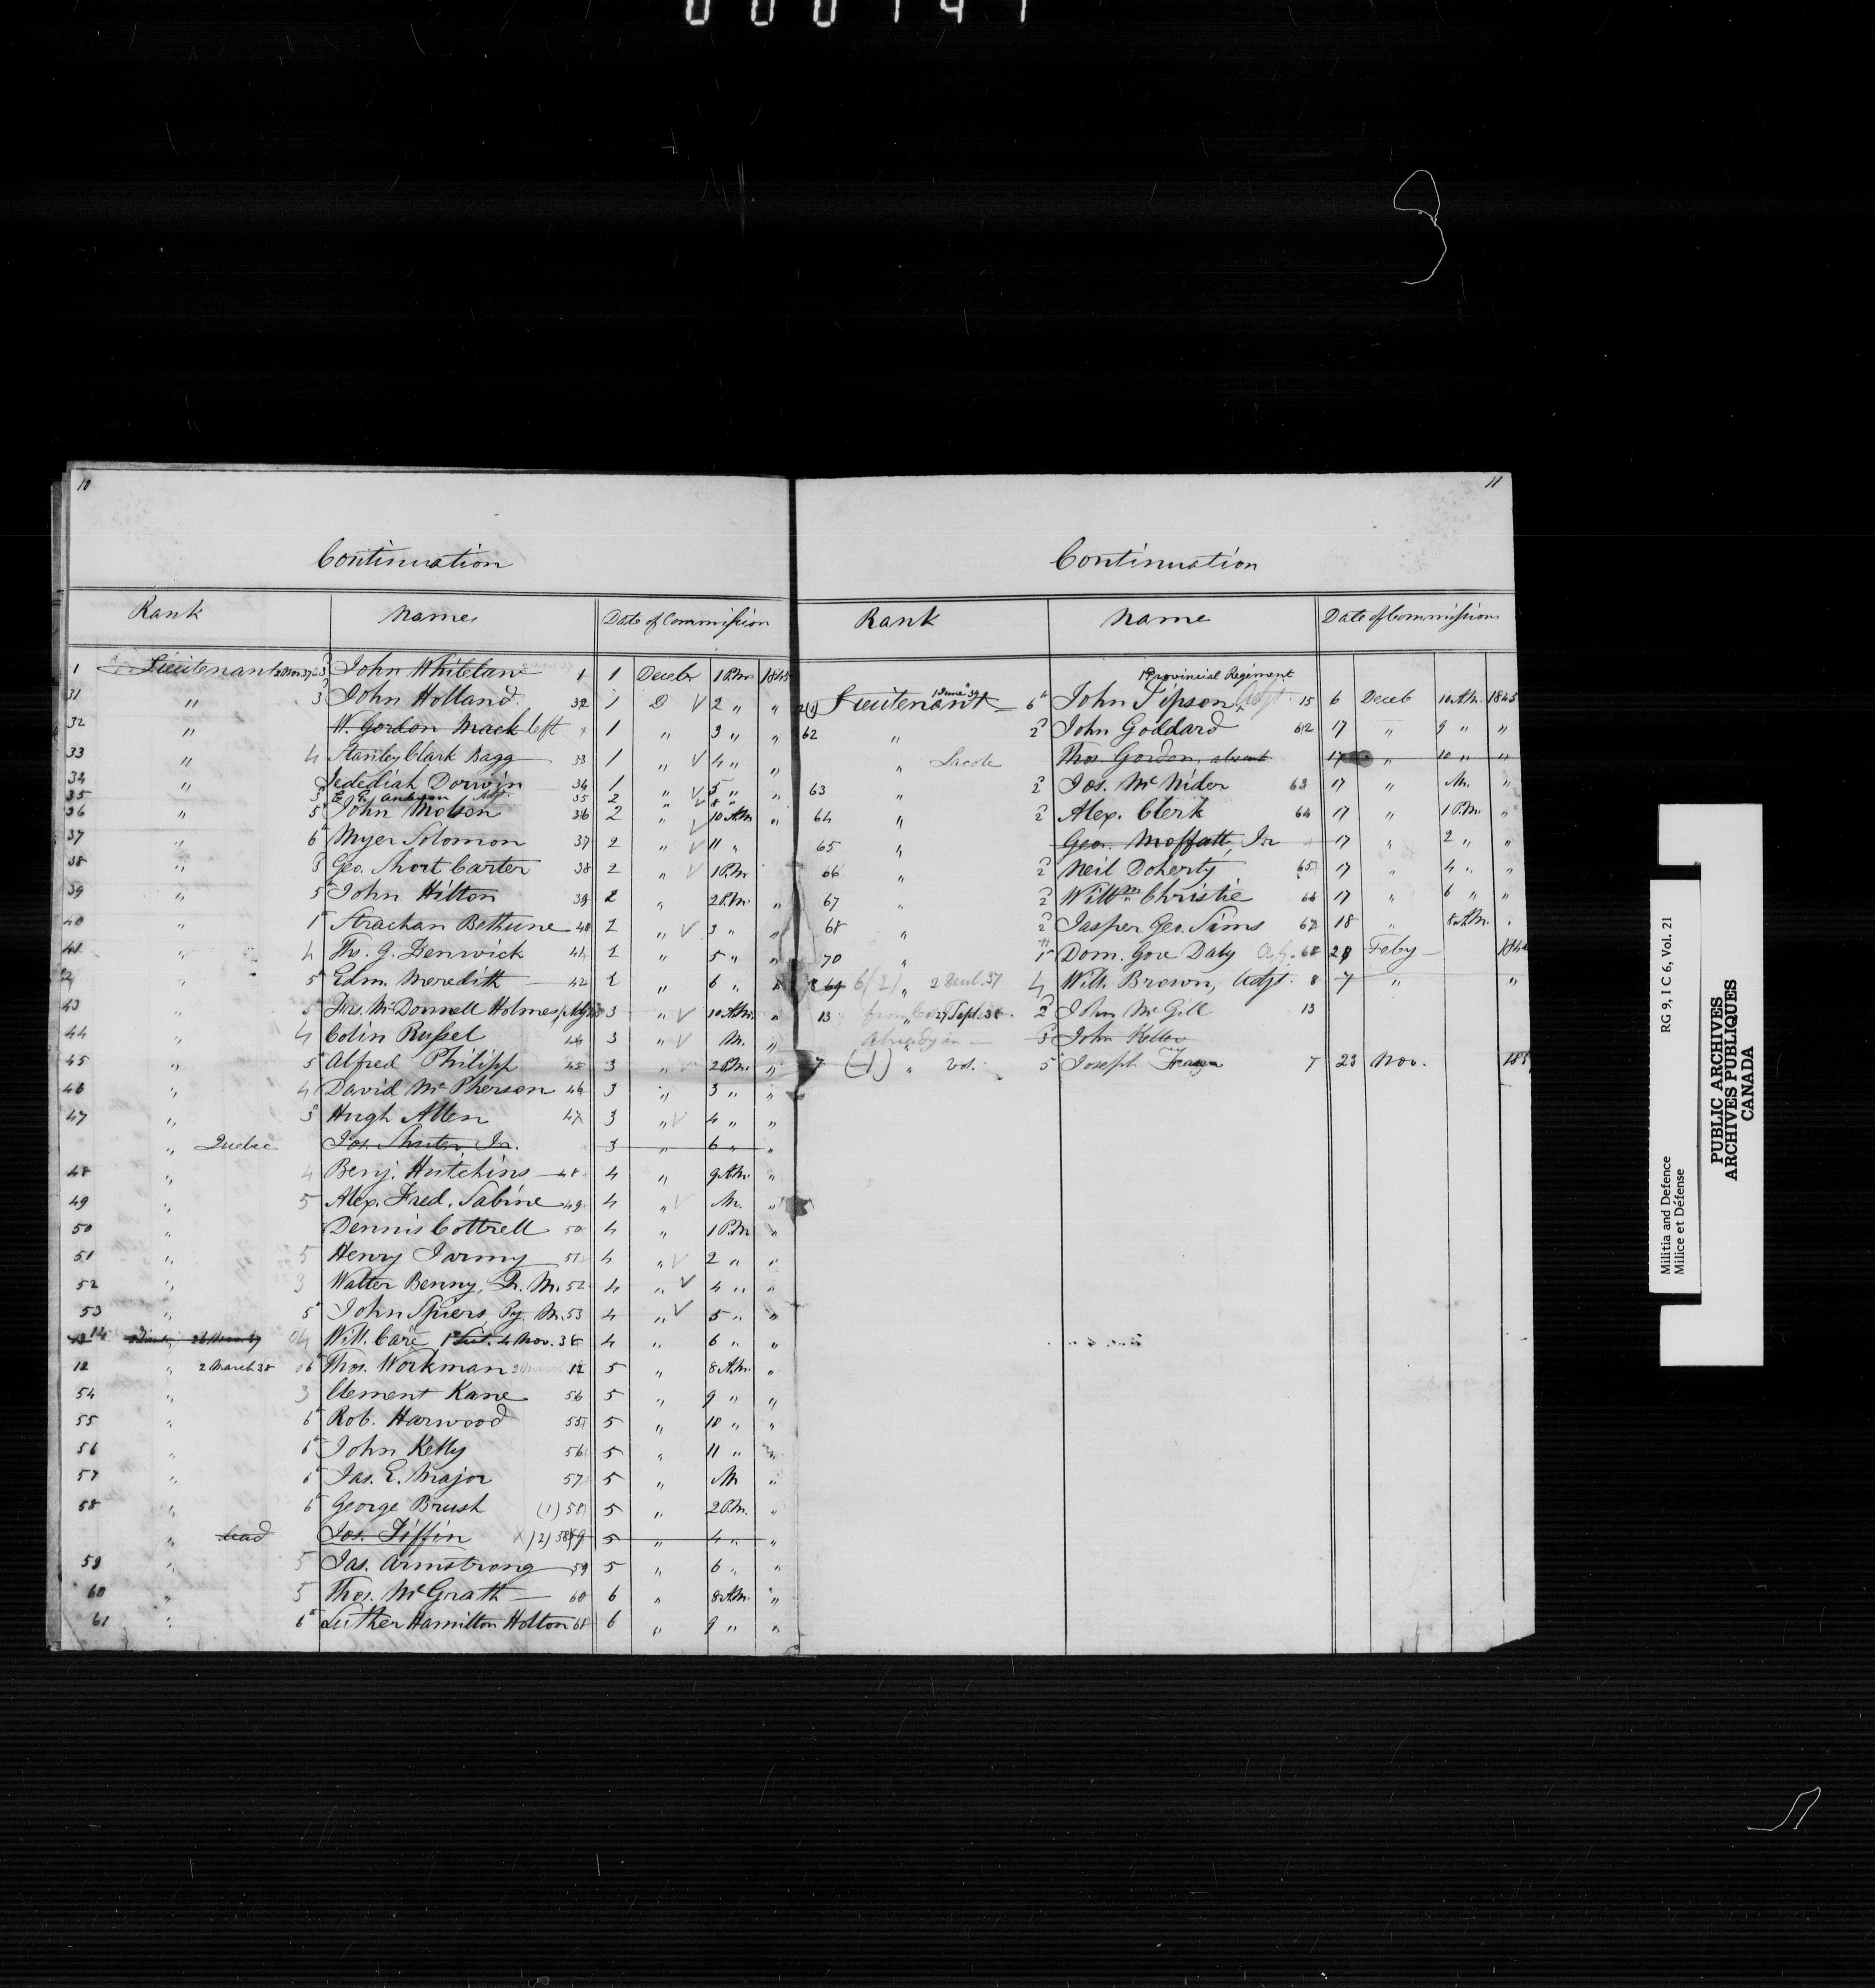 10
Continuation
Rank Names Date of Commission
1 Lieutenant 3 John Whitelaw 1 1 Deceb 1 P.M. 1845
31 " 3 John Holland 32 1 D V 2 " "
32 " W. Gordon Mack left 1 " 3 " "
33 " 4 Stanley Clark Bagg 33 1 " V 4 " "
34 " Jedediah Dorwin 34 1 " V 5 " "
35 3 Adj. 35 2 " V 8 "
36 " 5 John Molson 36 2 " 10 A.M. "
37 " 6 Myer Solomon 37 2 " V 11 "
38 " 3 Geo. Short Carter 38 2 " V 1 P.M.
39 " 5 John Hilton 39 2 " 2 P.M. "
40 " 1 Strachan Bethune 40 2 " V 3 " "
41 " 4 Ths. J. Fenwick 41 2 " 5 " "
42 " 5 Edm. Meredith 42 2 " 6 " "
43 " 5 Frs. McDonnell Holmes, Adj 3 " V 10 A.M. "
44 " 4 Colin Russel 44 3 " V M. "
45 " 5 Alfred Philipp 45 3 " V 2 P.M. "
46 " 4 David McPherson 46 3 " 3 " "
47 " 3 Hugh Allen 47 3 " V 4 " "
" Quebec Jos. Shuter Jr. 3 " 6 " "
48 " 4 Benj. Hutchins 48 4 " 9 A.M. "
49 " 5 Alex. Fred. Sabine 49 4 " V M. "
50 " Dennis Cottrell 50 4 " 1 P.M. "
51 " 5 Henry Jarmy 51 4 " V 2 " "
52 " 3 Walter Benny, Q. M. 52 4 " V 4 " "
53 " 5 John Spiers, Py. M. 53 4 " V 5 " "
14 4 Will. 4 Nov. 38 4 " 6 " "
12 " 2 March 38 6 Thos. Workman 12 5 " 8 A.M. "
54 " 3 Clement Kane 54 5 " 9 " "
55 " 6 Rob. Harwood 55 5 " 10 " "
56 " 6 John Kelly 56 5 " 11 " "
57 " 6 Jas. E. Major 57 5 " M "
58 " 6 George Brush (1) 58 5 " 2 P.M. "
" dead Jos. Tiffin (2) 5 " 4 " "
59 " 5 Jas. Armstrong 59 5 " 6 " "
60 " 5 Thos. McGrath 60 6 " 8 A.M. "
61 " 6 Luther Hamilton Holton 6 " 9 " "
11
Continuation
Rank Name Date of Commission
Provincial Regiment
Lieutenant 1 June 39 6 John Jepson, Adjt. 15 6 Deceb 10 A.M. 1845
62 " 2 John Goddard 62 17 " 9 " "
" Lacole Thos. Gordon, absent 17 " 10 " "
63 " 2 Jos. McNider 63 17 " M. "
64 " 2 Alex. Clerk 64 17 " 1 P.M. "
65 " Geo. Moffatt, Jr 17 " 2 " "
66 " 2 Neil Doherty 65 17 " 4 " "
67 " 2 Willm. Christie 66 17 " 6 " "
68 " 2 Jasper Geo. Sims 67 18 " 8 A.M. "
70 " 1 Dom. Gore Daly 68 28 Feby
69 6(2) " 37 4 Will. Brown, Adjt. 8 7 " "
13 " 27 Sept. 38 2 John McGill 13
Already in " 3 John Keller
7 (1) " vol. 5 Joseph 7 23 Nov.
Militia and Defence RG 9, I C 6, Vol. 21
Milice et Défense
PUBLIC ARCHIVES
ARCHIVES PUBLIQUES
CANADA